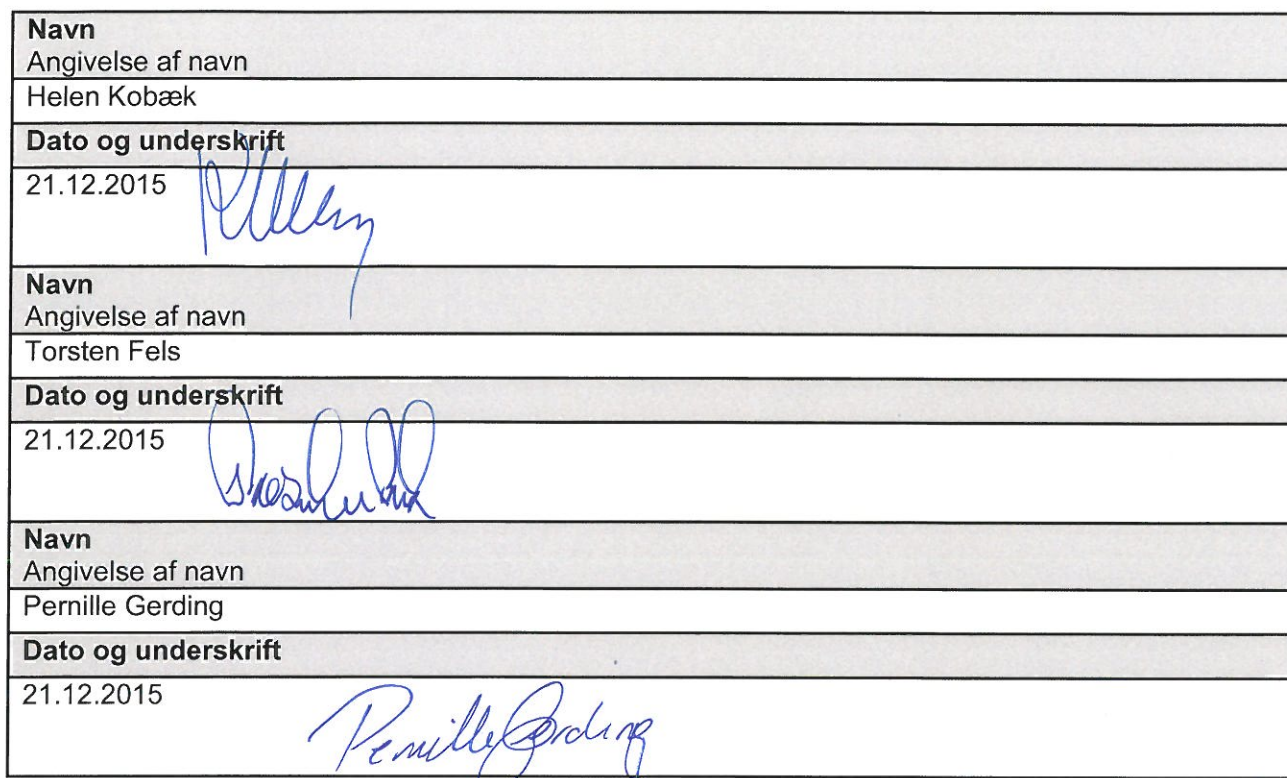 Navn
Angivelse af navn
Helen Kobæk
Dato og underskrift
21.12.2015
Navn
Angivelse af navn
Torsten Fels
Dato og underskrift
21.12.2015
Navn
Angivelse af navn
Pernille Gerding
Dato og underskrift
21.12.2015
Pernille Gerding